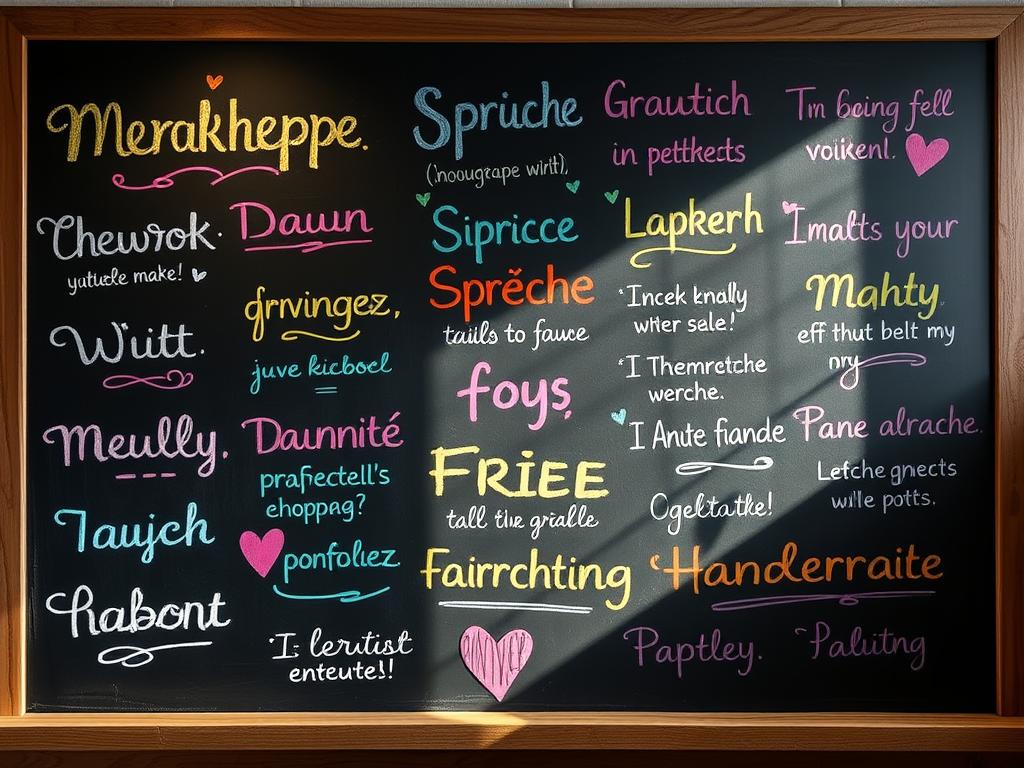 Merakheppe.
Chewrok.
yutuzle make!
Wiitt.
Meullly.
Taujch
habont
Daun
grvingez,
juve kicboel
Daunnité
prafectell's
ehoppag?
ponfoliez
I leritist
enteute!!
Sprüche
(nougrape wirlt),
Sipricce
Sprĕche
tails to fauce
foys,
FRIEE
tall the grialle
Fairrchting
Grautich
in pettkects
Lapkerh
Incek knally
whter sale!
I Themretche
werche.
I Ante fiande
Ogeltatke!
Handerraite
Paptley.
Tm being fell
voikenl.
Imalts your
Mahty.
eff thut belt my
ny
Pane alrache.
Lefche gnects
wille potts.
Palutng